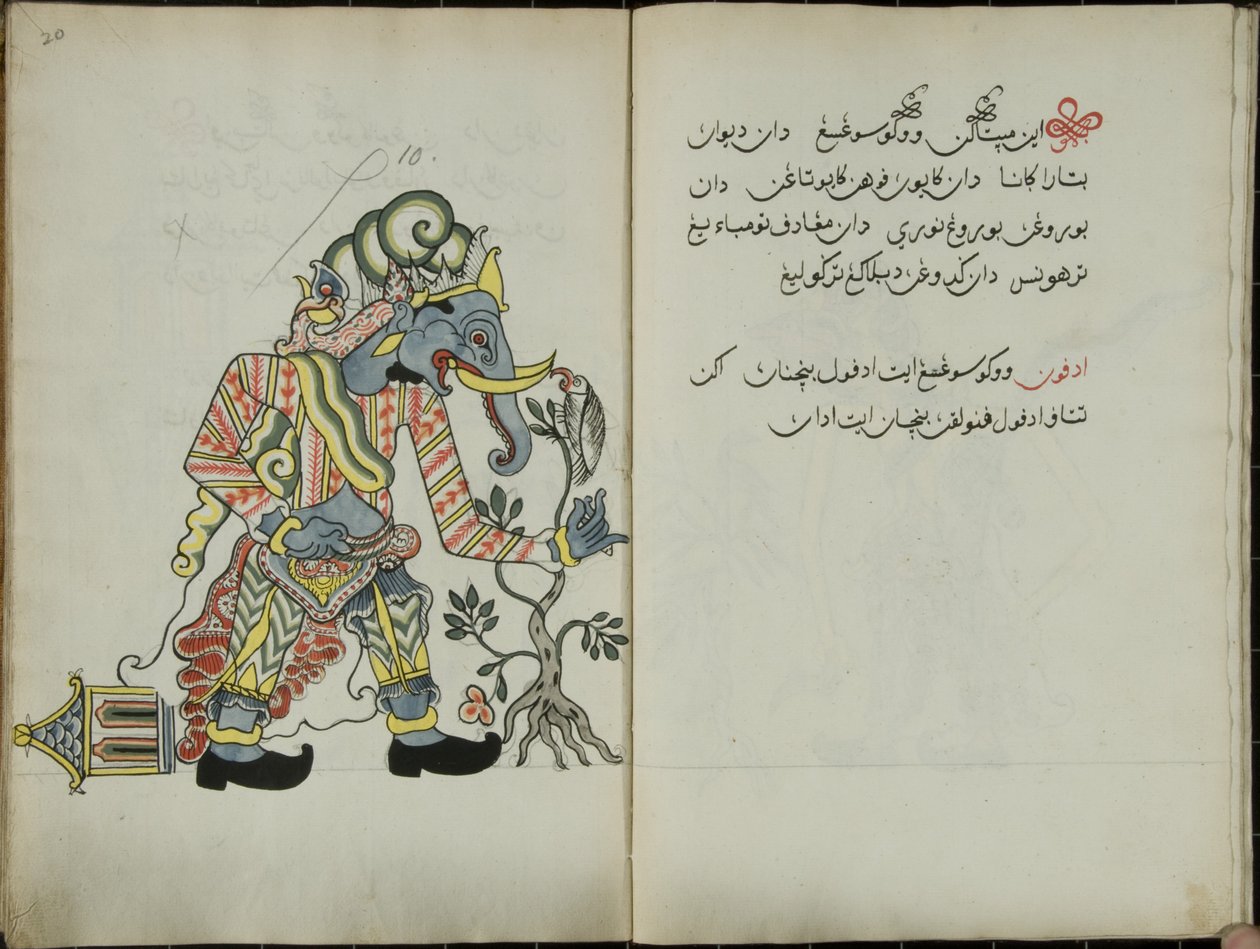 20
10.
اين مپتاكن ووكو سوڠسڠ دان ديواڽ
بتارا ݢانا دان كايوڽ فوهن كابوتاڠن دان
بوروڠڽ بوروڠ نوري دان مڠادف تومباء يڠ
ترهونس دان ݢدوڠڽ دبلاكڠ ترݢوليڠ
ادفون ووكو سوڠسڠ ايت ادفول بنچناڽ اكن
تتاف ادفول فنولقڽ بنچان ايت اداڽ